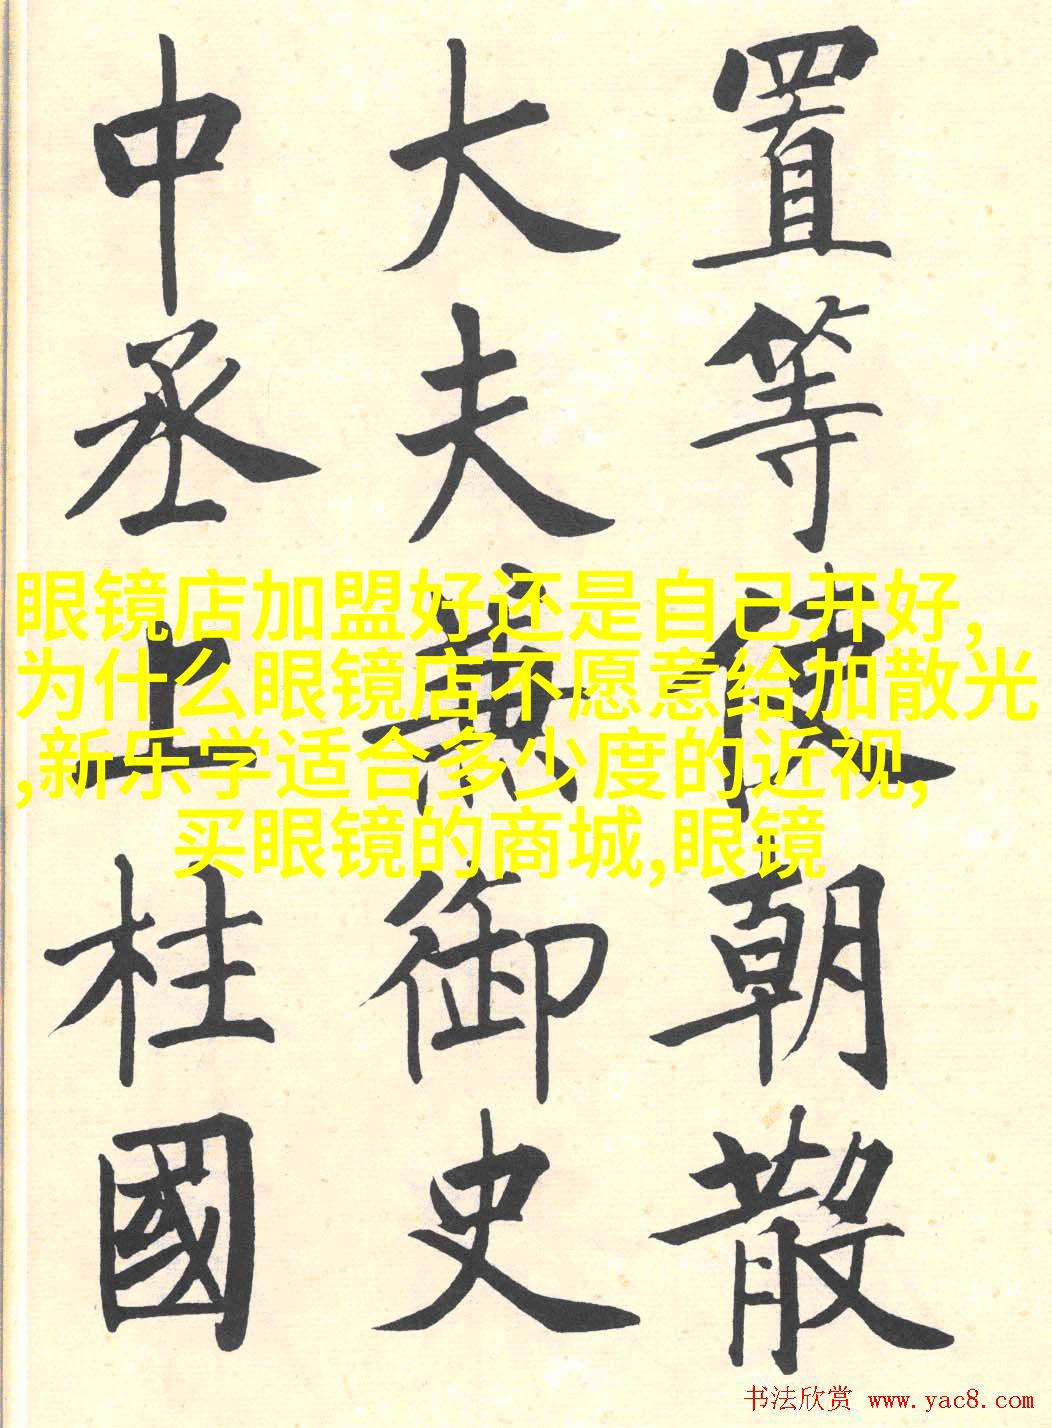 置等使朝散
大夫兼御史
中丞上柱國
眼镜店加盟好还是自己开好,
为什么眼镜店不愿意给加散光
,新乐学适合多少度的近视,
买眼镜的商城,眼镜
书法欣赏 www.yac8.com